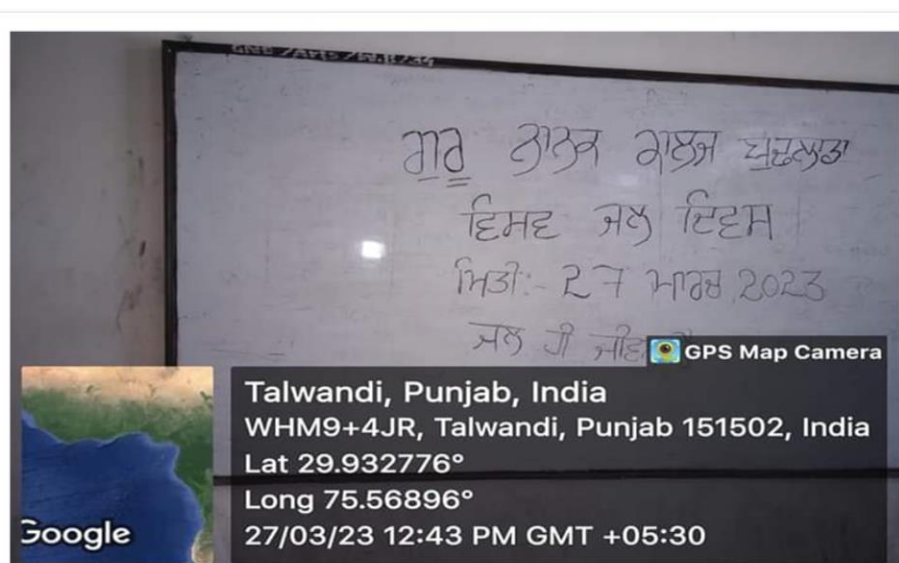 GNC/Arts/W.B/34
ਗੁਰੂ ਨਾਨਕ ਕਾਲਜ ਬੁਢਲਾਡਾ
ਵਿਸਵ ਜਲ ਦਿਵਸ
ਮਿਤੀ:- 27 ਮਾਰਚ 2023
ਜਲ ਹੀ
GPS Map Camera
Talwandi, Punjab, India
WHM9+4JR, Talwandi, Punjab 151502, India
Lat 29.932776°
Long 75.56896°
27/03/23 12:43 PM GMT +05:30
Google